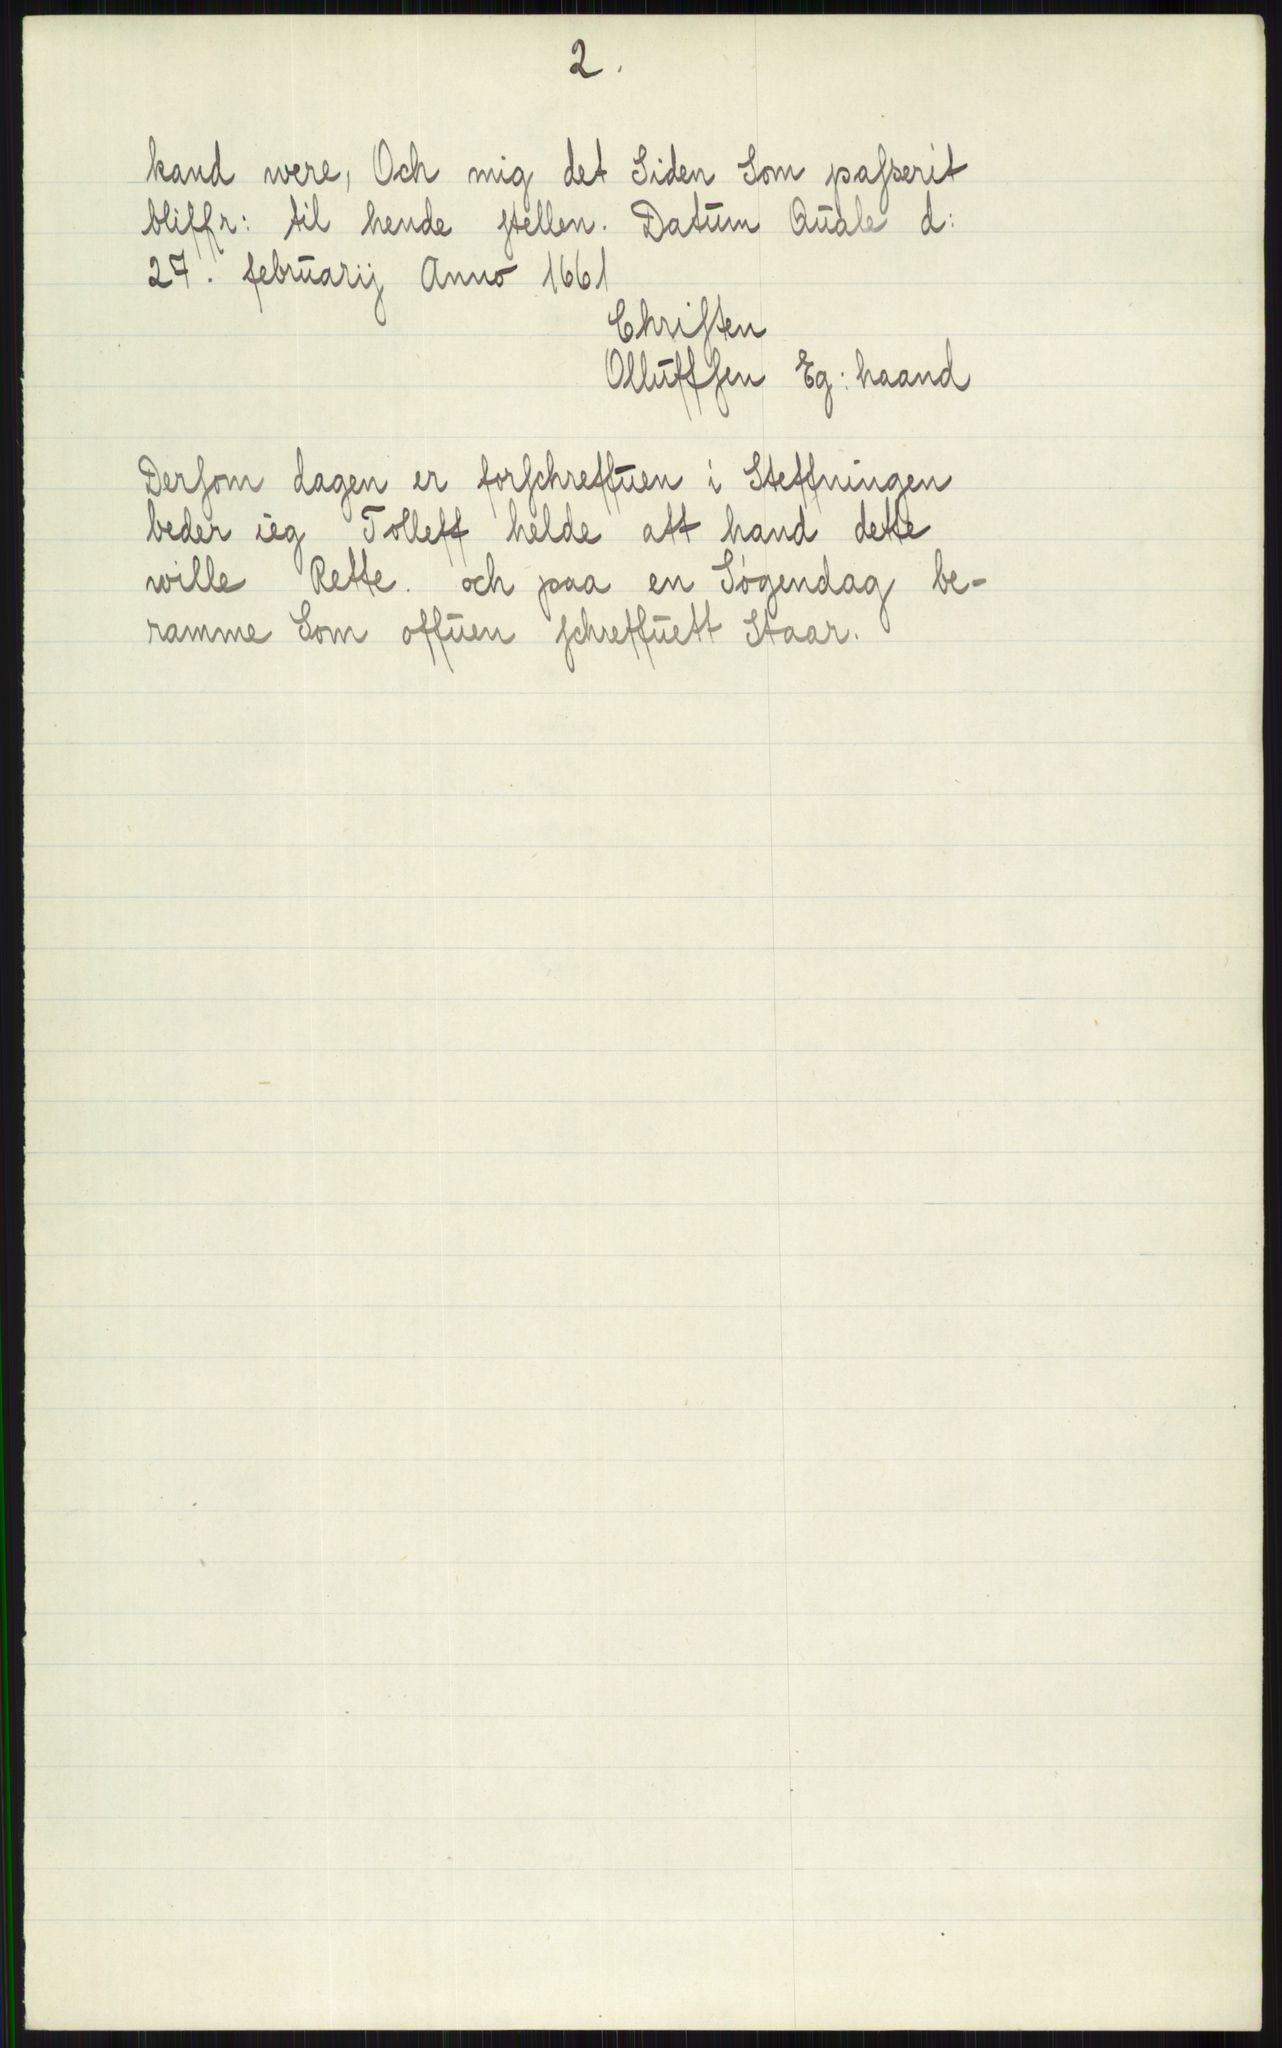 2.
kand were, Och mig det Siden Som paſserit
bliffr: til hende ſtellen. Datūm Qūale d:
27. febrūarij Anno 1661
Chriſten
Ollūffſen Eg: haand
Derſom dagen er forſchreffūen i Steffningen
beder ieg Tolleff helde att hand dette
wille Rette. och paa en Søgendag be-
ramme Som offūen ſchreffūett Staar.